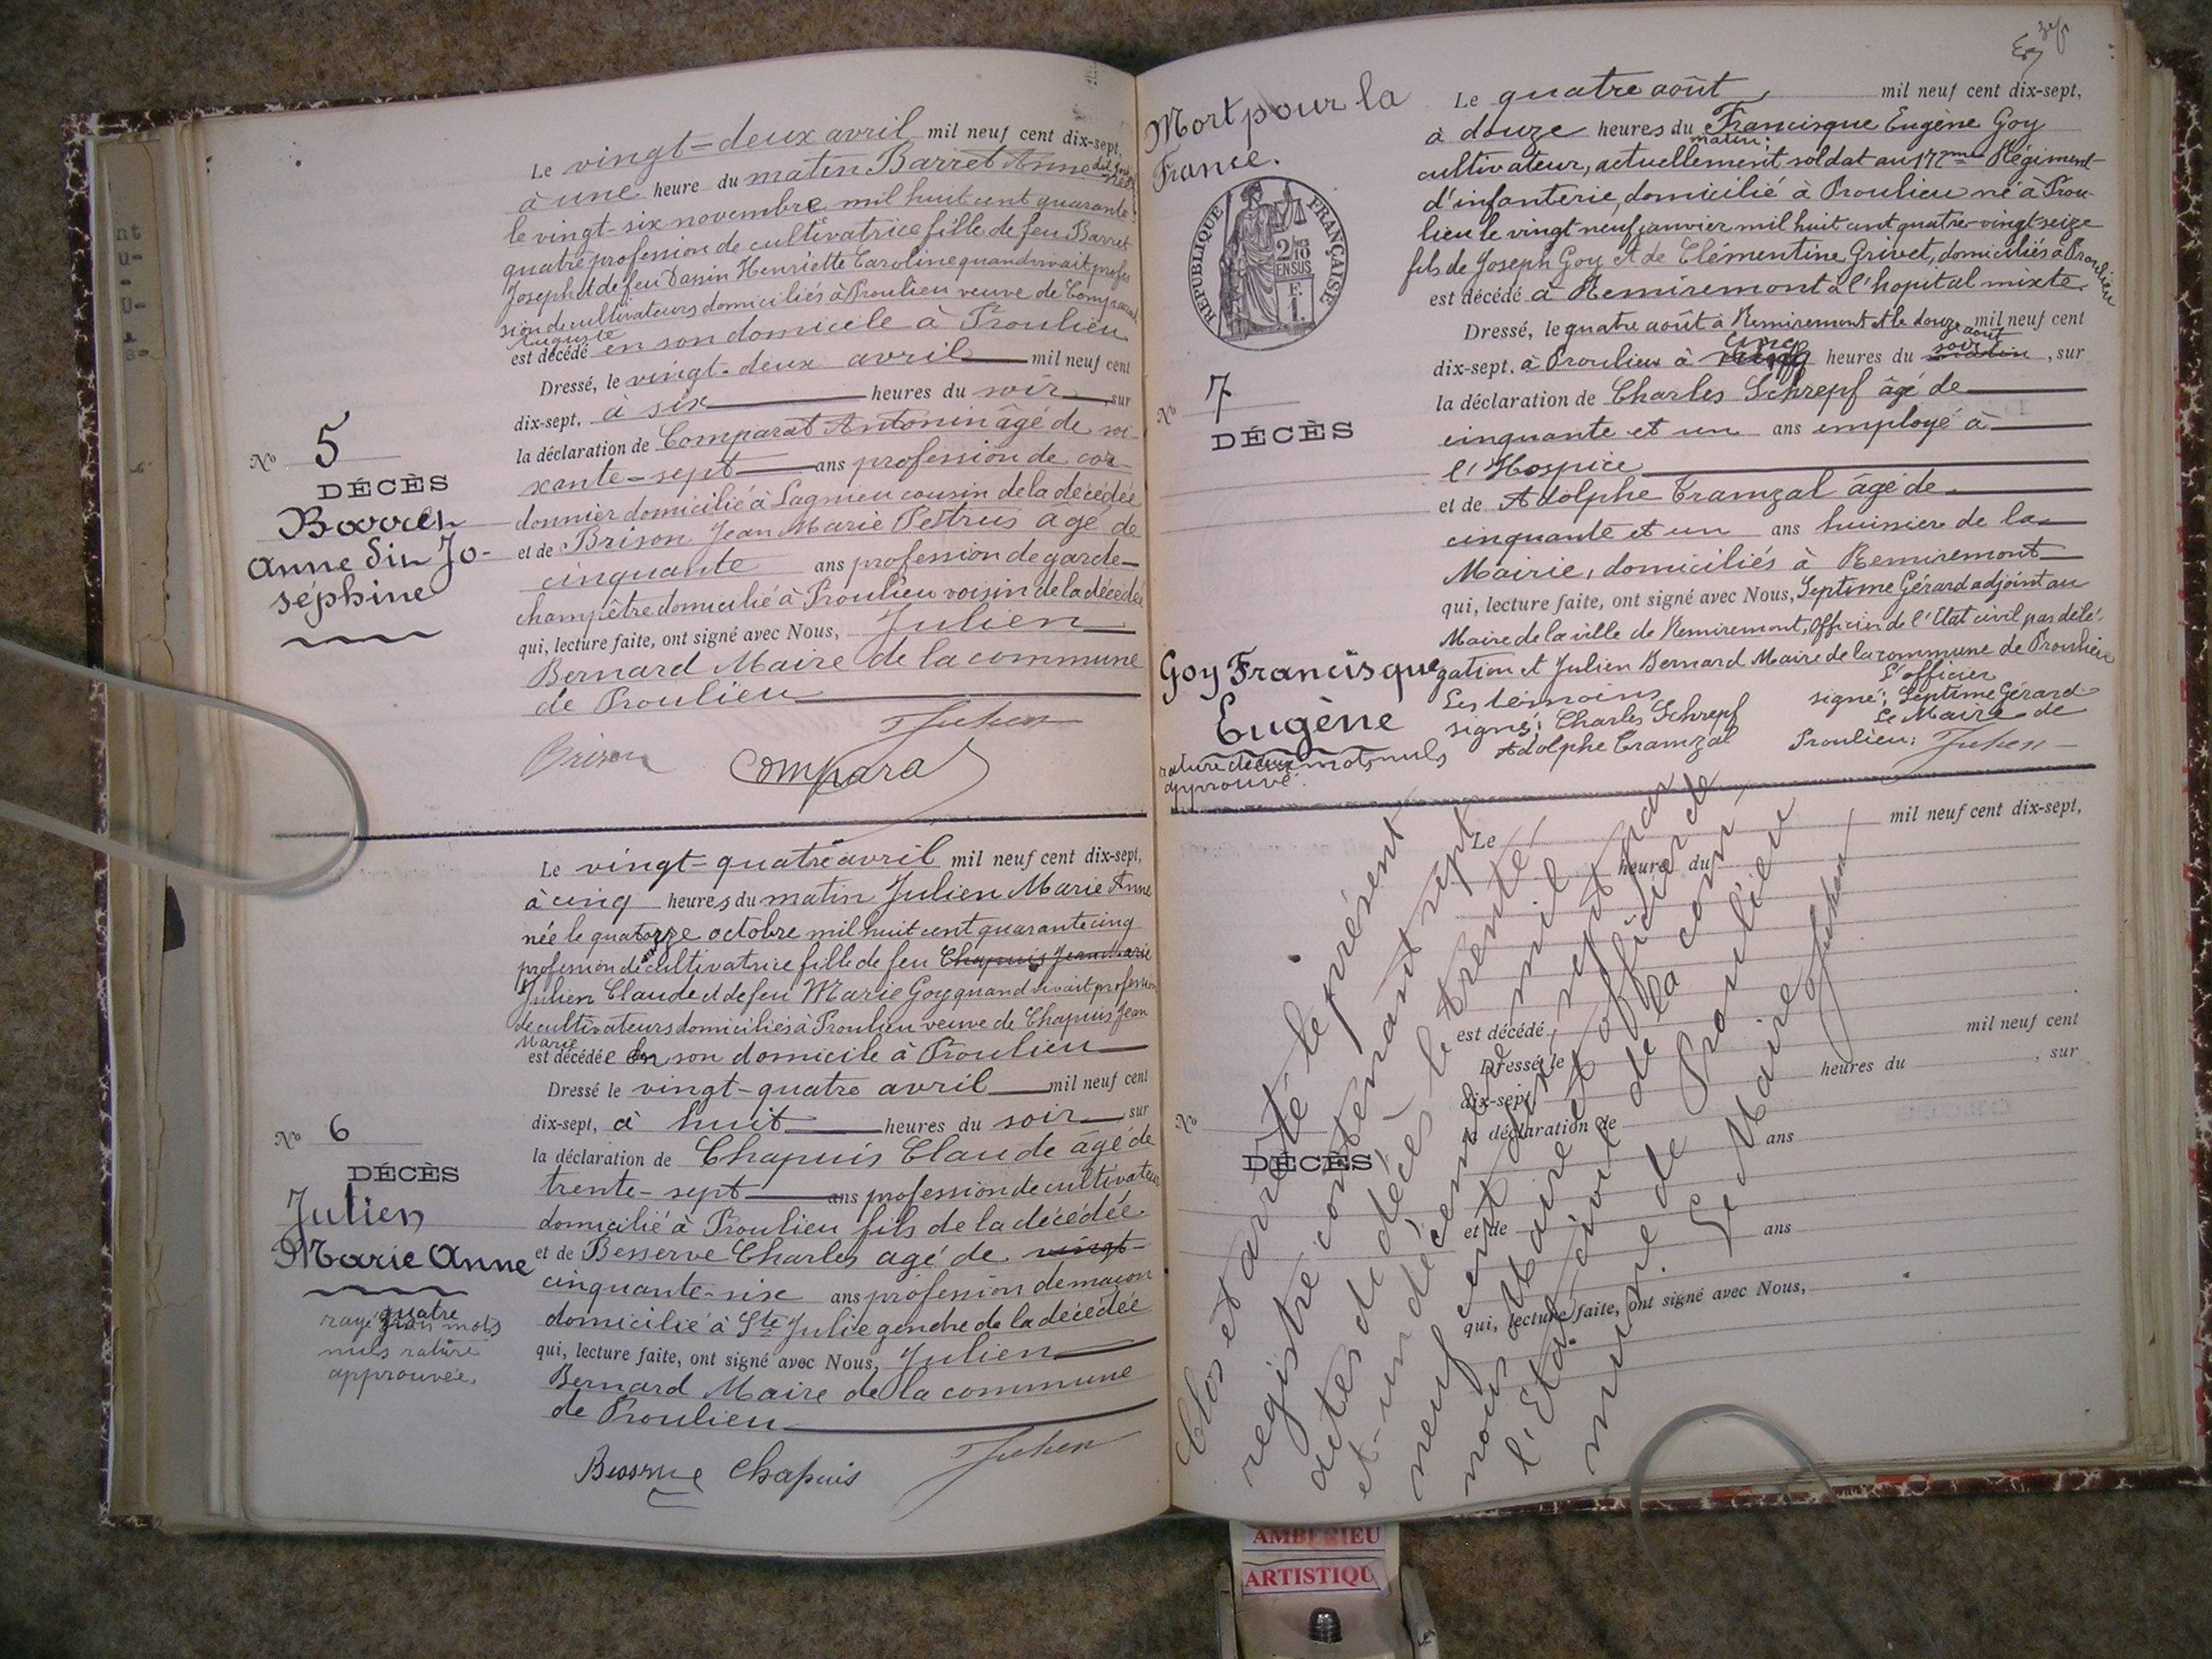 Le vingt-deux avril mil neuf cent dix-sept,
à une heure du matin Barret Anne
le vingt-six novembre mil huit cent quarante
quatre profession de cultivatrice fille de feu Barret
Joseph et de feu Dassin Henriette Caroline quand vivait profes
sion de cultivateurs domiciliés à Proulieu veuve de Comparat
Auguste
est décédé en son domicile à Proulieu
Dressé, le vingt-deux avril mil neuf cent
dix-sept, à six heures du soir, sur
la déclaration de Comparat Antonin âgé de soi-
xante-sept ans profession de cor-
donnier domicilié à Lagnieu cousin de la décédée
et de Brison Jean Marie Pétrus agé de
cinquante ans profession de garde-
champêtre domicilié à Proulieu voisin de la décédée
qui, lecture faite, ont signé avec Nous, Julien
Bernard Maire de la commune
de Proulieu
Julien
Brison Comparat
No 5
DÉCÈS
Barret
Anne dite Jo-
séphine
Le vingt-quatre avril mil neuf cent dix-sept,
à cinq heures du matin Julien Marie Anne
née le quatorze octobre mil huit cent quarante cinq
profession de cultivatrice fille de feu Chapuis Jean Marie
Julien Claude et de feu Marie Goy quand vivait profession
de cultivateurs domiciliés à Proulieu veuve de Chapuis Jean
Marie
est décédée en son domicile à Proulieu
Dressé le vingt-quatre avril mil neuf cent
dix-sept, à huit heures du soir, sur
la déclaration de Chapuis Claude âgé de
trente-sept ans profession de cultivateur
domicilié à Proulieu fils de la décédée.
et de Besserve Charles agé de vingt-
cinquante-six ans profession de maçon
domicilié à Ste Julie gendre de la décédée
qui, lecture faite, ont signé avec Nous, Julien
Bernard Maire de la commune
de Proulieu
Besserve Chapuis Julien
No 6
DÉCÈS
Julien
Marie Anne
quatre
rayé mots
nuls rature
approuvée.
Mort pour la
France.
RÉPUBLIQUE FRANÇAISE
2/10
EN SUS
F.
1.
Le quatre août mil neuf cent dix-sept,
à douze heures du matin, Francisque Eugène Goy
cultivateur, actuellement soldat au 172me Régiment
d'infanterie, domicilié à Proulieu né à Prou-
lieu le vingt neuf janvier mil huit cent quatre-vingt seize
fils de Joseph Goy et de Clémentine Grivet, domiciliés à Proulieu
est décédé à Remiremont à l'hopital mixte.
Dressé, le quatre août à Remiremont et le douze août mil neuf cent
dix-sept, à Proulieu à cinq heures du soir matin, sur
la déclaration de Charles Schrepf âgé de
cinquante et un ans employé à
l'Hospice
et de Adolphe Tramzal âgé de
cinquante et un ans huissier de la
Mairie, domiciliés à Remiremont
qui, lecture faite, ont signé avec Nous, Septime Gérard adjoint au
Maire de la ville de Remiremont, Officier de l'Etat civil par délé-
gation et Julien Bernard Maire de la commune de Proulieu
Les témoins L'officier
signé: Charles Schrepf signé: Septime Gérard
Adolphe Tramzal Le Maire de
Proulieu: Julien
No 7
DÉCÈS
Goy Francisque
Eugène
rature deux mots nuls
approuvé.
Le mil neuf cent dix-sept,
heures du
est décédé
Dressé, le mil neuf cent
dix-sept, heures du , sur
la déclaration de
ans
et de
ans
qui, lecture faite, ont signé avec Nous,
No
DÉCÈS
Clos et arrêté le présent
registre contenant sept
actes de décès le trente-
et-un décembre mil
neuf cent dix-sept par
nous Maire et officier de
l'Etat civil de la com-
mune de Proulieu
Le Maire Julien
AMBERIEU
ARTISTIQU